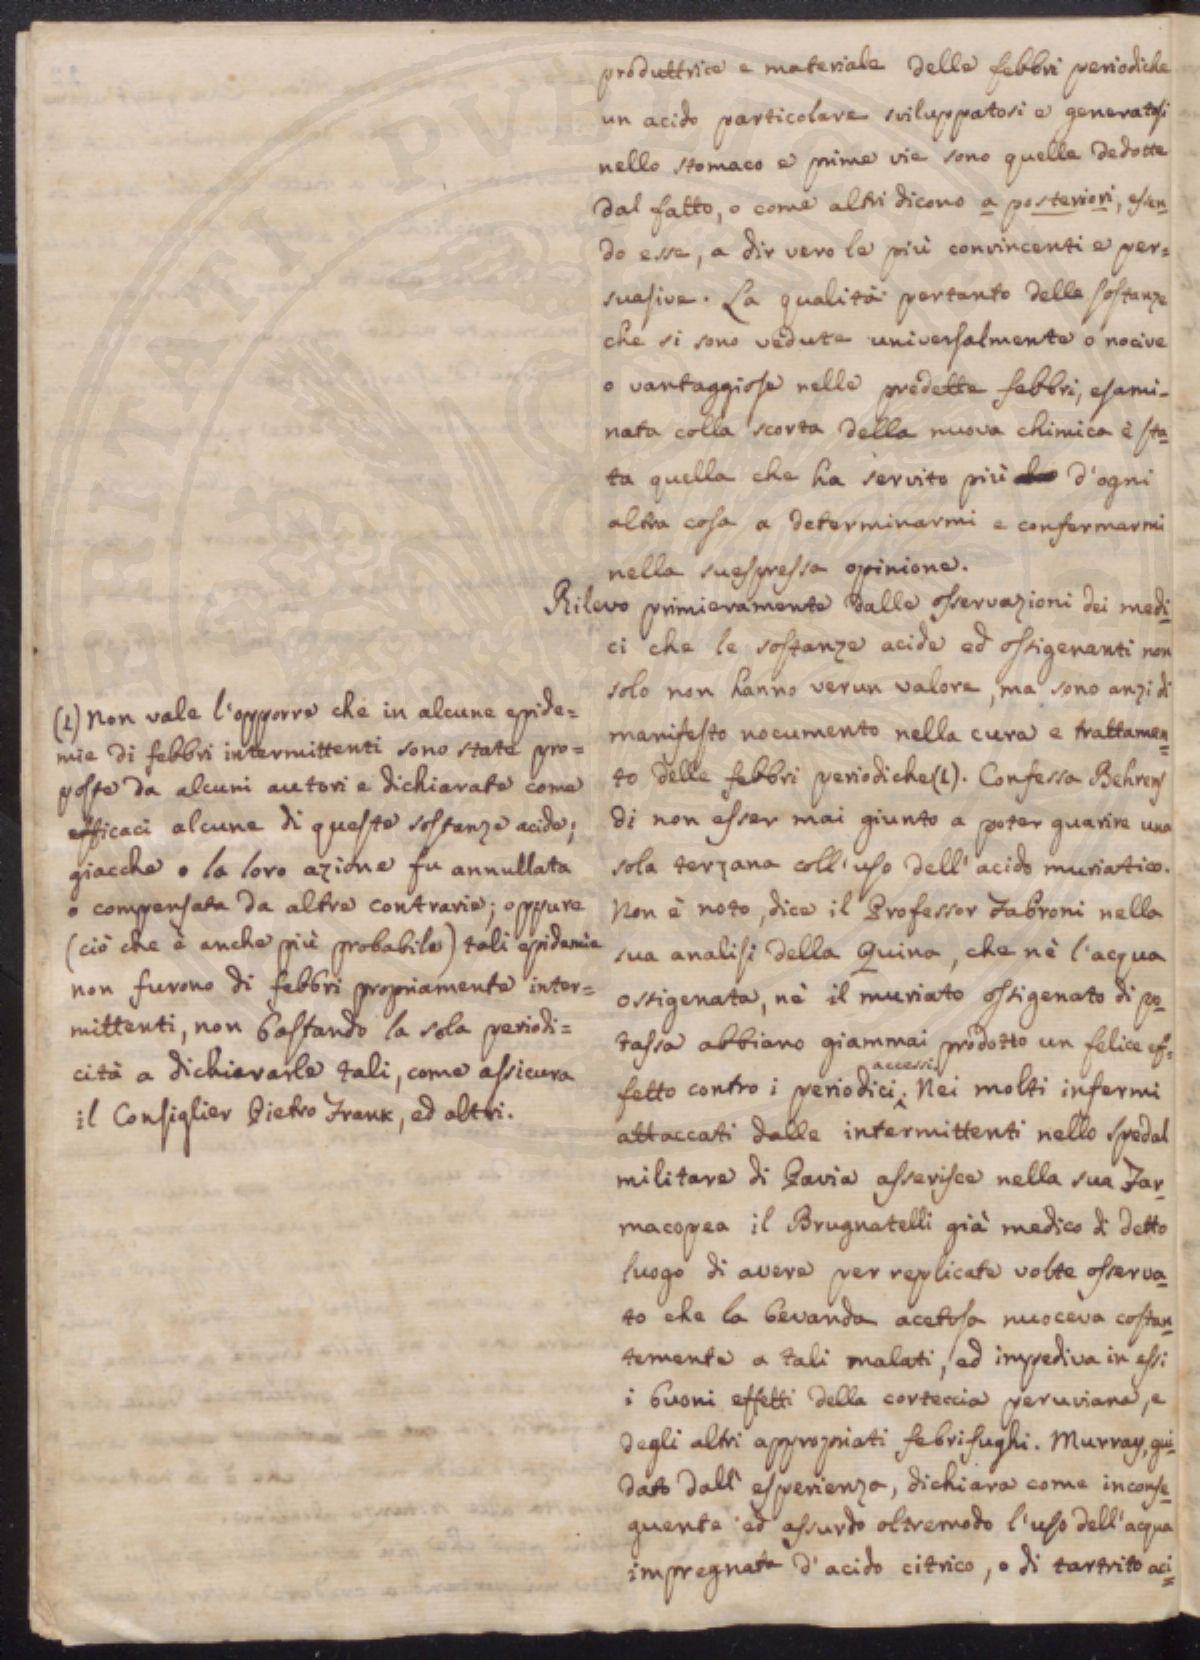 produttrice e materiale delle febbri periodiche
un acido particolare sviluppatosi e generatosi
nello stomaco e prime vie sono quelle dedotte
dal fatto, o come altri dicono a posteriori, essen-
do esse, a dir vero le più convincenti e per=
suasive. La qualità pertanto delle sostanze
che si sono vedute universalmente o nocive
o vantaggiose nelle predette febbri, esami-
nata colla scorta della nuova chimica è sta=
ta quella che ha servito più d'ogni
altra cosa a determinarmi e confermarmi
nella suespressa opinione.
Rilevo primieramente dalle osservazioni dei medi=
ci che le sostanze acide ed ossigenanti non
solo non hanno verun valore, ma sono anzi di
manifesto nocumento nella cura e trattamen=
to delle febbri periodiche(1). Confessa Behrens
di non esser mai giunto a poter guarire una
sola terzana coll'uso dell'acido muriatico.
Non è noto, dice il Professor Fabroni nella
sua analisi della Quina, che nè l'acqua
ossigenata, nè il muriato ossigenato di po=
tassa abbiano giammai prodotto un felice ef=
fetto contro i periodici accessi. Nei molti infermi
attaccati dalle intermittenti nello spedal
militare di Pavia asserisce nella sua Far=
macopea il Brugnatelli già medico di detto
luogo di avere per replicate volte osserva=
to che la bevanda acetosa nuoceva costan=
temente a tali malati, ed impediva in essi
i buoni effetti della corteccia peruviana, e
degli altri appropriati febrifughi. Murray, gui=
dato dall'esperienza, dichiara come inconse=
guente ed assurdo oltremodo l'uso dell'acqua
impregnata d'acido citrico, o di tartrito aci=
(1) Non vale l'opporre che in alcune epide=
mie di febbri intermittenti sono state pro=
poste da alcuni autori e dichiarate come
efficaci alcune di queste sostanze acide;
giacche o la loro azione fu annullata
o compensata da altre contrarie; oppure
(ciò che è anche più probabile) tali epidemie
non furono di febbri propriamente inter=
mittenti, non bastando la sola periodi=
cità a dichiararle tali, come assicura
il Consiglier Pietro Frank, ed altri.